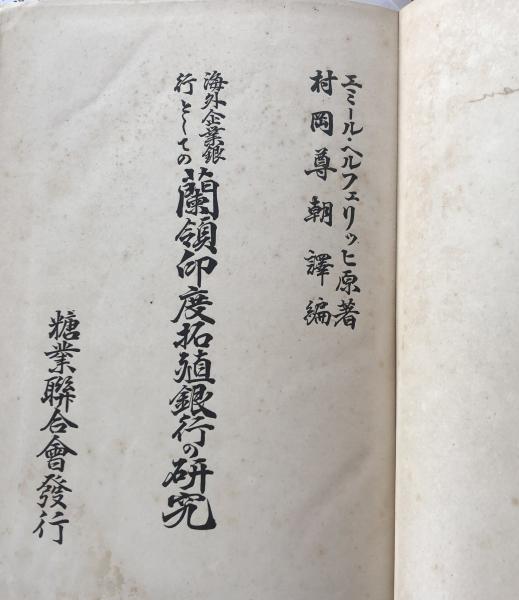 エミール・ヘルフェリッヒ原著
村岡尊朝譯編
海外企業銀
行としての
蘭領印度拓殖銀行の研究
糖業聯合會發行